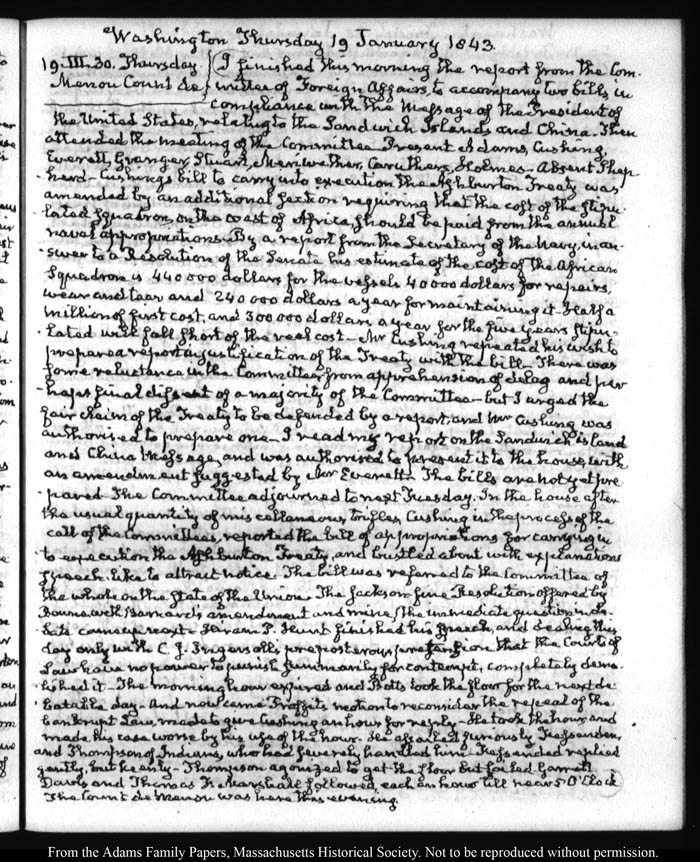 Washington Thursday 19 January 1843.
19. III. 30. Thursday. I finished this morning the report from the Com-
Menou Count de mittee of Foreign Affairs, to accompany two bills in
compliance with the Message of the President of
the United States, relating to the Sandwich Islands and China. Then
attended the meeting of the Committee Present Adams, Cushing,
Everett, Granger, Stuart, Meriwether, Caruthers, Holmes. Absent Shep-
herd. Cushing's bill to carry into execution the Ashburton Treaty was
amended by an additional section requiring that the cost of the stipu-
lated Squadron on the coast of Africa should be paid from the annual
naval appropriations. By a report from the Secretary of the Navy, in an-
swer to a Resolution of the Senate his estimate of the cost of the African
Squadron is 440 000 dollars for the vessels 40 000 dollars for repairs,
wear and tear and 240 000 dollars a year for maintaining it. Half a
million of first cost, and 300 000 dollars a year for the five years stipu-
lated will fall short of the real cost. Mr Cushing repeated his wish to
prepare a report in justification of the Treaty with the bill. There was
some reluctance in the Committee from apprehension of delay and per-
haps final dissent of a majority of the Committee—but I urged the
fair claim of the Treaty to be defended by a report, and Mr Cushing was
authorised to prepare one. I read my report on the Sandwich island
and China Message, and was authorised to present it to the house, with
an amendment suggested by Mr Everett. The bills are not yet pre-
pared. The Committee adjourned to next Tuesday. In the house after
the usual quantity of miscellaneous trifles, Cushing in the process of the
call of the Committees, reported the bill of appropriations for carrying in-
to execution the Ashburton Treaty, and bustled about with explanations
speech-like to attract notice. The bill was referred to the Committee of
the whole on the state of the Union. The Jackson fine Resolution offered by
with Barnard's amendment and mine, the immediate question in de-
bate came up next. Hiram P. Hunt finished his speech, and dealing this
day only with C. J. Ingersoll's preposterous pretension that the Courts of
Law have no power to punish summarily for contempt, completely demo-
lished it. The morning hour expired and Botts took the floor for the next de-
bateable day. And now came Proffit's motion to reconsider the repeal of the
bankrupt Law, made to give Cushing an hour for reply. He took the hour, and
made his case worse by his use of the hour. He assailed furiously Fessenden,
and Thompson of Indiana, who had severely handled him. Fessenden replied
gently, but keenly. Thompson agonized to get the floor but failed. Garrett
Davis and Thomas F. Marshall followed, each an hour till near 5 O'Clock
The Count de Menou was here this evening.
From the Adams Family Papers, Massachusetts Historical Society. Not to be reproduced without permission.